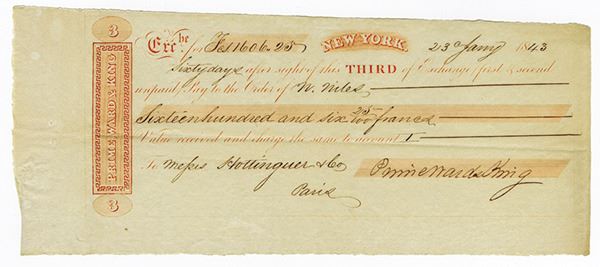 3
PRIME WARD & KING
3
Excᵇᵉ for Fcs 1606.25 NEW YORK. 23ᵈ Jany 1843
Sixty days after sight of this THIRD of Exchange, first & second
unpaid Pay to the Order of W. Niles
Sixteen hundred and six 25/100 francs
Value received and charge the same to account
To Messrs Hottinguer & Co Prime Ward & King
Paris